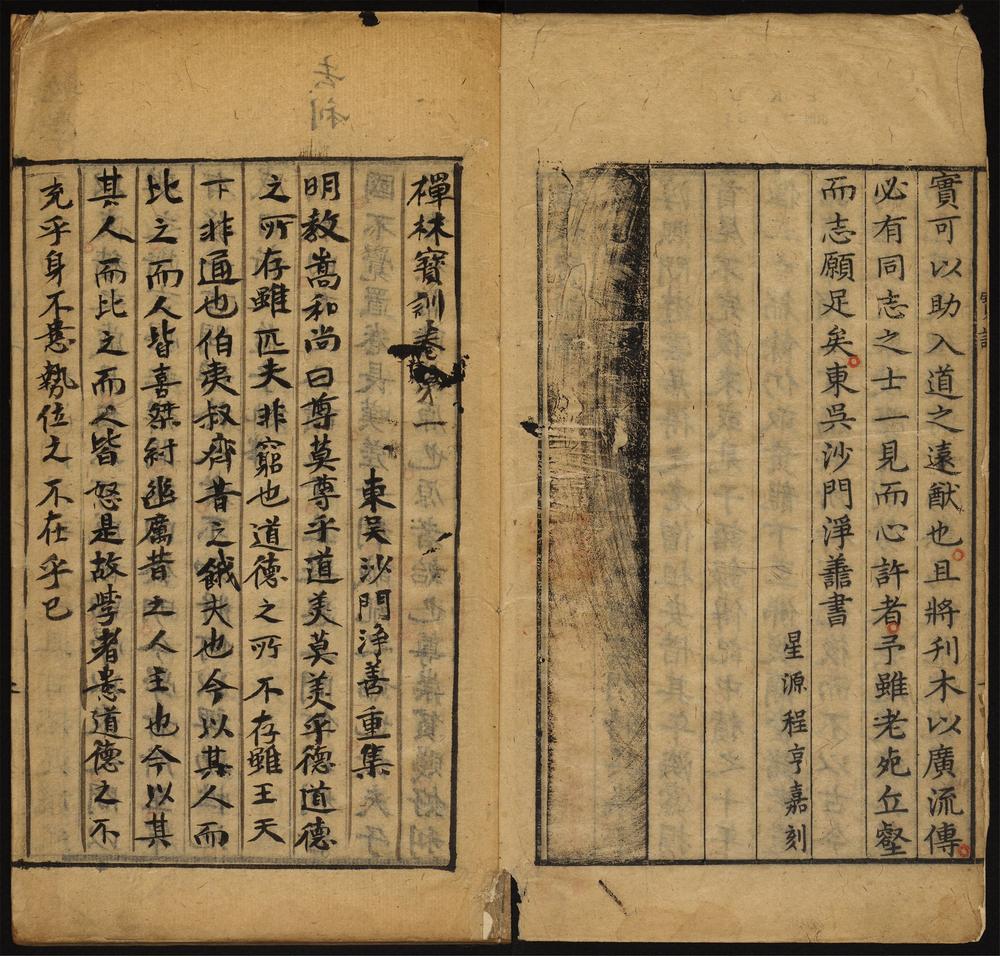 實可以助入道之遠猷也且將刊木以廣流傳
必有同志之士一見而心許者予雖老死丘壑
而志願足矣東吳沙門淨善書
星源程亨嘉刻
禪林寶訓卷
東吴沙門淨善重集
明教嵩和尚曰尊莫尊乎道美莫美乎德道德
之所存雖匹夫非窮也道德之所不存雖王天
下非通也伯夷叔齊昔之餓夫也今以其人而
比之而人皆喜桀紂幽厲昔之人主也今以其
其人而比之而人皆怒是故學者患道德之不
充乎身不患勢位之不在乎已